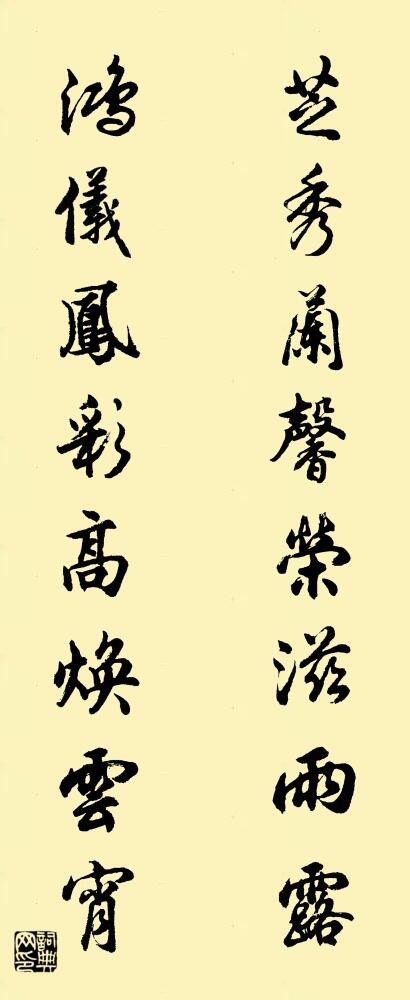 芝秀蘭馨榮滋雨露
鴻儀鳳彩高煥雲宵
詞典网印